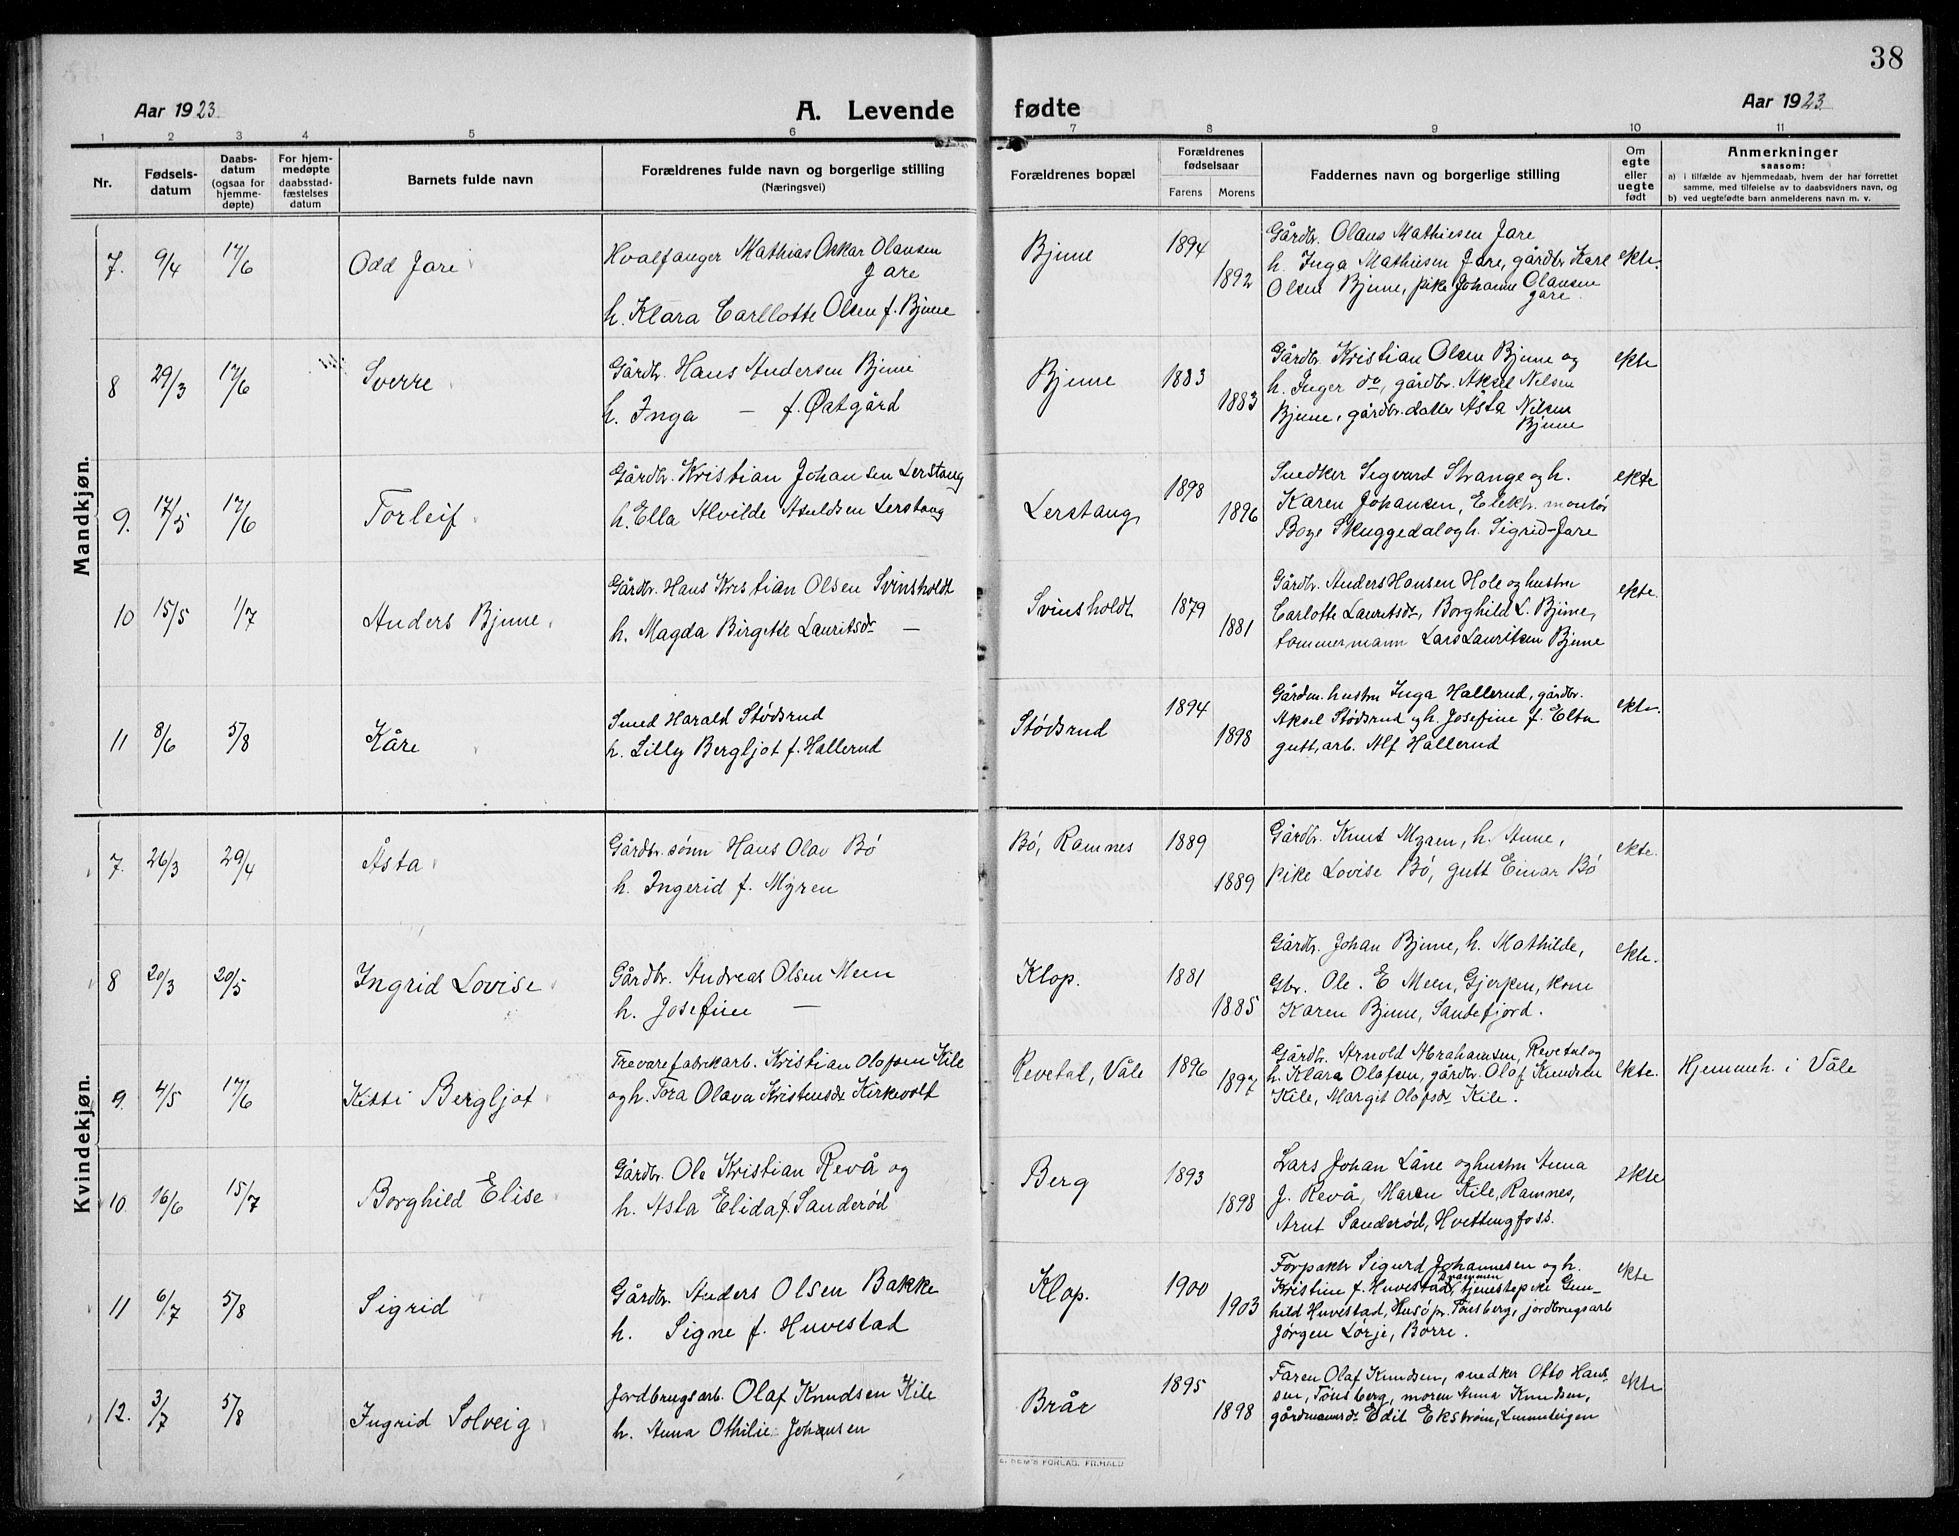 38
Aar 1923
A. Levende fødte
Aar 1923
1 2 3 4 5 6 7 8 9 10 11
Nr.
Fødsels-
datum
Daabs-
datum
(ogsaa for
hjemme-
døpte)
For hjem-
medøpte
daabsstad-
fæstelses
datum
Barnets fulde navn
Forældrenes fulde navn og borgerlige stilling
(Næringsvei)
Forældrenes bopæl
Forældrenes
fødselsaar
Farens Morens
Faddernes navn og borgerlige stilling
Om
egte
eller
uegte
født
Anmerkninger
saasom:
a) i tilfælde av hjemmedaab, hvem der har forrettet
samme, med tilføielse av to daabsvidners navn, og
b) ved uegtefødte barn anmelderens navn m. v.
Mandkjøn.
7. 9/4 17/6 Odd Jare
Hvalfanger Mathias Oskar Olausen
Jare
h. Klara Carllotte Olsen f. Bjune
Bjune 1894 1892
Gårdbr. Olaus Mathiesen Jare
h. Inga Mathiesen Jare, gårdbr. Karl
Olsen Bjune, pike Johanne Olausen
Jare
ekte.
8 29/3 17/6 Sverre
Gårdbr. Hans Andersen Bjune
h. Inga — f. Østgård
Bjune 1883 1883
Gårdbr. Kristian Olsen Bjune og
h. Inger do, gårdbr. Aksel Nilsen
Bjune, gårdbr. datter Åsta Nilsen
Bjune
ekte
9. 17/5 17/6 Torleif
Gårdbr. Kristian Johansen Lerstang
h. Ella Alvilde Asuldsen Lerstang
Lerstang 1898 1896
Snedker Sigvard Strange og h.
Karen Johansen, Elektr. montør
Boye Skuggedal og h. Sigrid Jare
ekte
10 15/5 1/7 Anders Bjune
Gårdbr. Hans Kristian Olsen Svinsholdt
h. Magda Birgette Lauritsdr —
Svinsholdt 1879 1881
Gårdbr. Anders Hansen Hole og hustru
Carlotte Lauritsdr, Borghild L. Bjune,
tømmermann Lars Lauritsen Bjune
ekte.
11 8/6 5/8 Kåre
Smed Harald Stødsrud
h. Lilly Bergljot f. Hallerud
Stødsrud 1894 1898
Gårdm. hustru Inga Hallerud, gårdbr.
Aksel Stødsrud og h. Josefine f. Elta
gutt, arb. Alf Hallerud
ekte.
Kvindekjøn.
7. 26/3 29/4 Åsta
Gårdbr. sønn Hans Olav Bø
h. Ingerid f. Myren
Bø, Ramnes 1889 1889
Gårdbr. Knut Myren, h. Anne,
pike Lovise Bø, gutt Einar Bø
ekte.
8 20/3 20/5 Ingrid Lovise
Gårdbr. Andreas Olsen Meen
h. Josefine —
Klop. 1881 1885
Gårdbr. Johan Bjune, h. Mathilde,
Gbr. Ole. E Meen, Gjerpen, kone
Karen Bjune, Sandefjord.
ekte.
9. 4/5 17/6 Kitti Bergljot
Trevarefabrikarb. Kristian Olafsen Kile
og h. Tora Olava Kristensdr Kirkevolt
Revetal, Våle 1896 1897
Gårdbr. Arnold Abrahamsen, Revetal og
h. Klara Olafsen, gårdbr. Olaf Knudsen
Kile, Margit Olafsdr Kile.
ekte. Hjemmeh. i Våle
10. 16/6 15/7 Borghild Elise
Gårdbr. Ole Kristian Revå og
h. Asta Elida f. Sanderød
Berg 1893 1898
Lars Johan Låne og hustru Anna
J. Revå, Maren Kile, Ramnes,
Arnt Sanderød, Hvittingfoss.
ekte
11 6/7 5/8 Sigrid
Gårdbr. Anders Olsen Bakke
h. Signe f. Huvestad
Klop. 1900 1903
Forpakter Sigurd Johannesen og h.
Kristine f. Huvestad, Drammen, tjenestepike Gun-
hild Huvestad, Husø pr. Tønsberg, jordbrugsarb
Jørgen Lørje, Borre.
ekte
12. 3/7 5/8 Ingrid Solveig
Jordbrugsarb. Olaf Knudsen Kile
h. Anna Othilie Johansen
Brår 1895 1898
Faren Olaf Knudsen, snedker Otto Han-
sen, Tønsberg, moren Anna Knudsen,
gårdmannsdr Edit Ekstrøm, Linnesteigen
ekte
SEM'S FORLAG, FR.HALD